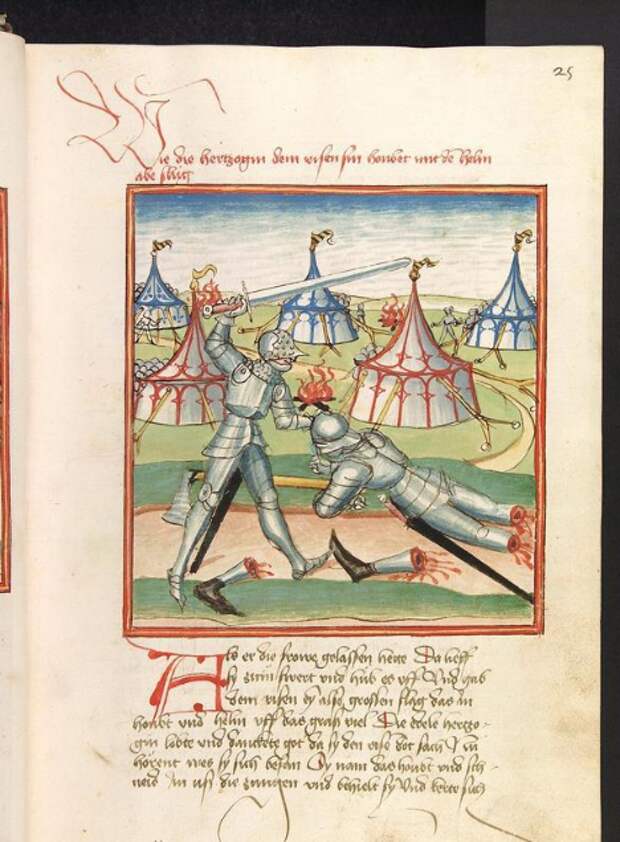 25
Wie die hertzogin dem risen sin houbet mit dem helm
abe slug
Als er die frowe gelassen hette Da lieff
sy zum swert vnd hub es vff Vnd gab
dem risen ey also grossen slag das im
houbt vnd helm vff das graß viel Die edele hertzo-
gin lobte vnd danckte got da sy den rise dot sach Nu
hörent wes sy sich began Sy nam das houbt vnd sch-
neid im vß die zungen vnd behielt sy Vnd kerte sich